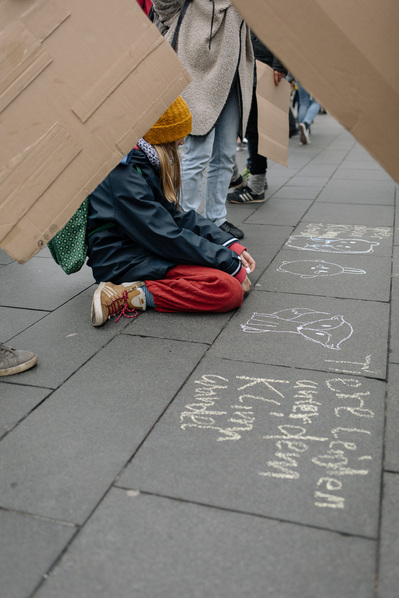 Tiere leiden
unter dem
Klima
wandel